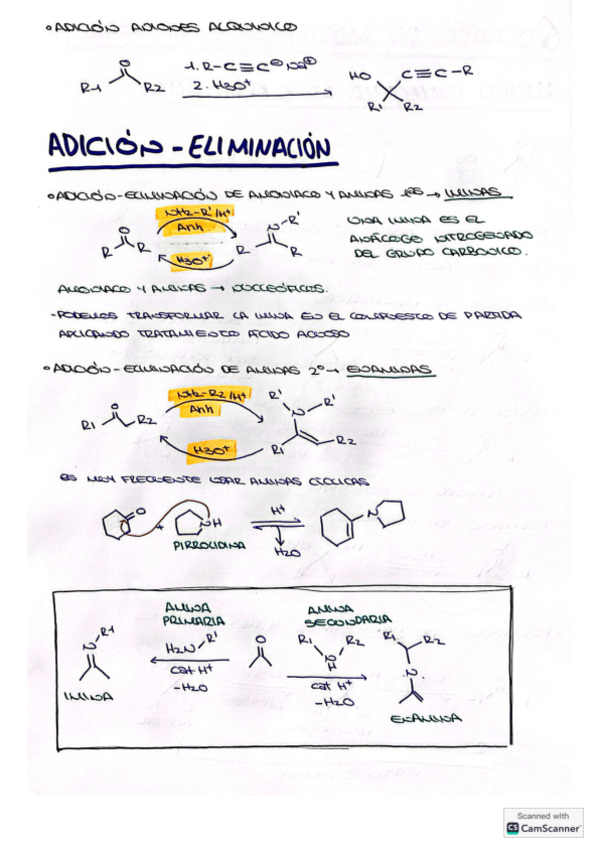 •ADICIÓN ANIONES ALQUINILO
O
R1 R2
1. R-C≡C⊖Na⊕
2. H3O+
HO C≡C-R
R1 R2
ADICIÓN-ELIMINACIÓN
•ADICIÓN-ELIMINACIÓN DE AMONIACO Y AMINAS 1as → IMINAS
NH2-R'/H+
Anh
H3O+
O
R R
N-R'
R R
UNA IMINA ES EL
ANÁLOGO NITROGENADO
DEL GRUPO CARBONILO.
AMONIACO Y AMINAS → NUCLEÓFILOS.
-PODEMOS TRANSFORMAR LA IMINA EN EL COMPUESTO DE PARTIDA
APLICANDO TRATAMIENTO ÁCIDO ACUOSO
•ADICIÓN-ELIMINACIÓN DE AMINAS 2º→ ENAMINAS
NH2-R2/H+
Anh
H3O+
O
R1 R2
R' R'
N
R1 R2
ES MUY FRECUENTE USAR AMINAS CÍCLICAS
O + NH
PIRROLIDINA
H+
H2O
N
AMINA
PRIMARIA
AMINA
SECUNDARIA
N-R1
IMINA
H2N R'
cat H+
-H2O
O
R1 R2
N
H
cat H+
-H2O
R1 R2
N
ENAMINA
Scanned with
CS CamScanner